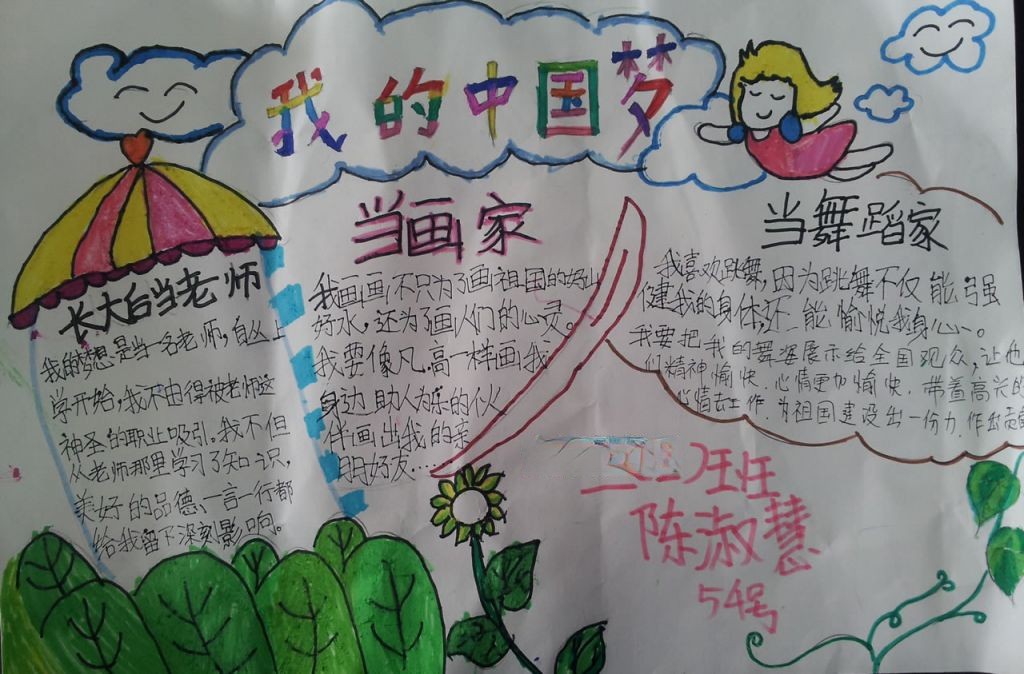 我的中国梦
长大后当老师
我的梦想是当一名老师,自从上
学开始,我不由得被老师这
神圣的职业吸引。我不但
从老师那里学习了知识,
美好的品德、一言一行都
给我留下深刻影响。
当画家
我画画,不只为了画祖国的好山
好水,还为了画人们的心灵。
我要像凡.高一样画我
身边助人为乐的伙
伴画出我的亲
朋好友……
当舞蹈家
我喜欢跳舞,因为跳舞不仅能强
健我的身体,还能愉悦我身心。
我要把我的舞姿展示给全国观众,让他
们精神愉快.心情更加愉快.带着高兴的
心情去工作.为祖国建设出一份力.作出贡献
班
陈淑慧
54号